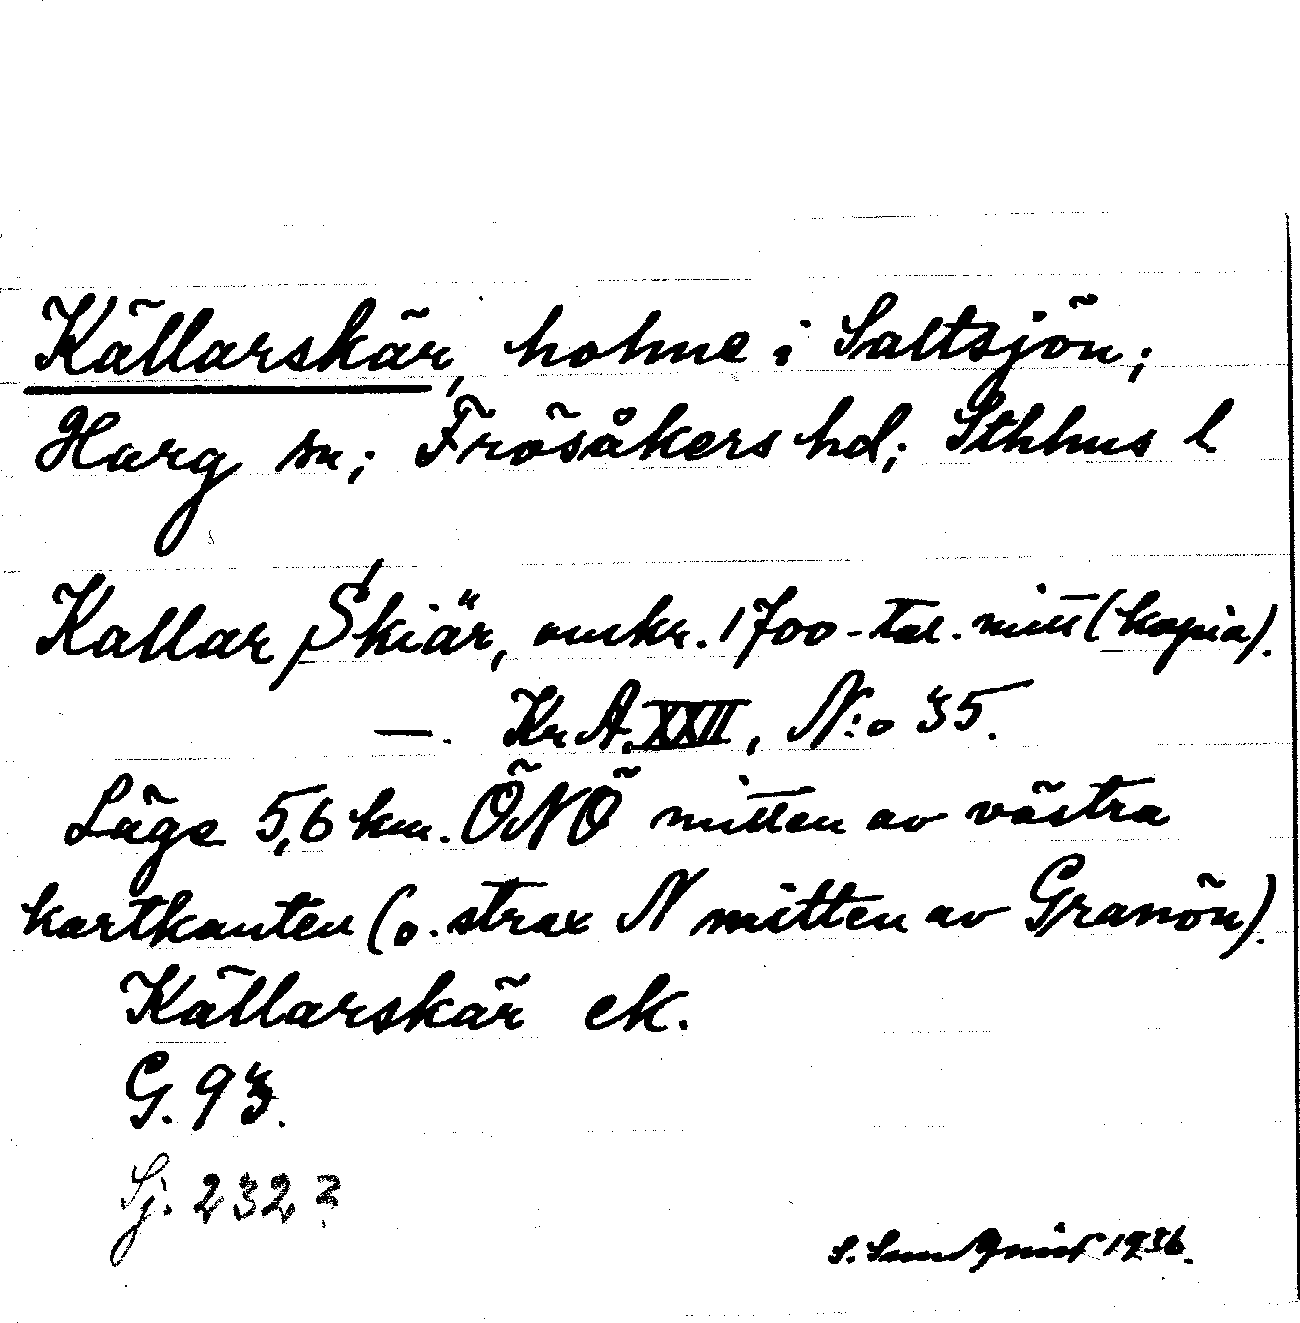 Källarskär, holme i Saltsjön;
Harg sn; Frösåkers hd; Sthhns l
Kallar Skiär, omkr. 1700-tal. mitt (kopia).
—. Kr. A. XXII, N:o 35.
Läge 5,6 km. ÖNÖ mitten av västra
kartkanten (o. strax N mitten av Granön).
Källarskär ek.
G. 93.
Sj. 232?
S. Sundquist 1936.